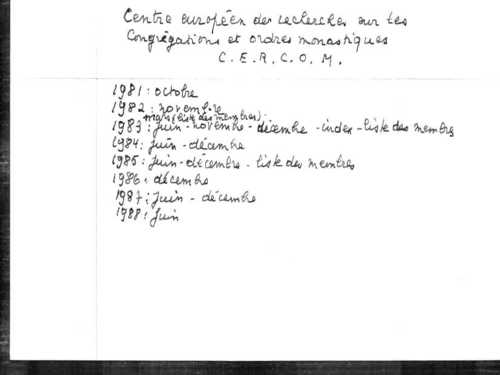 Centre européen de recherches sur les
Congrégations et ordres monastiques
C. E. R. C. O. M.
1981 : octobre
1982 : novembre
mars (liste des membres) :
1983 : juin - novembre - décembre - index - liste des membres
1984 : juin - décembre
1985 : juin - décembre - liste des membres
1986 : décembre
1987 : juin - décembre
1988 : juin